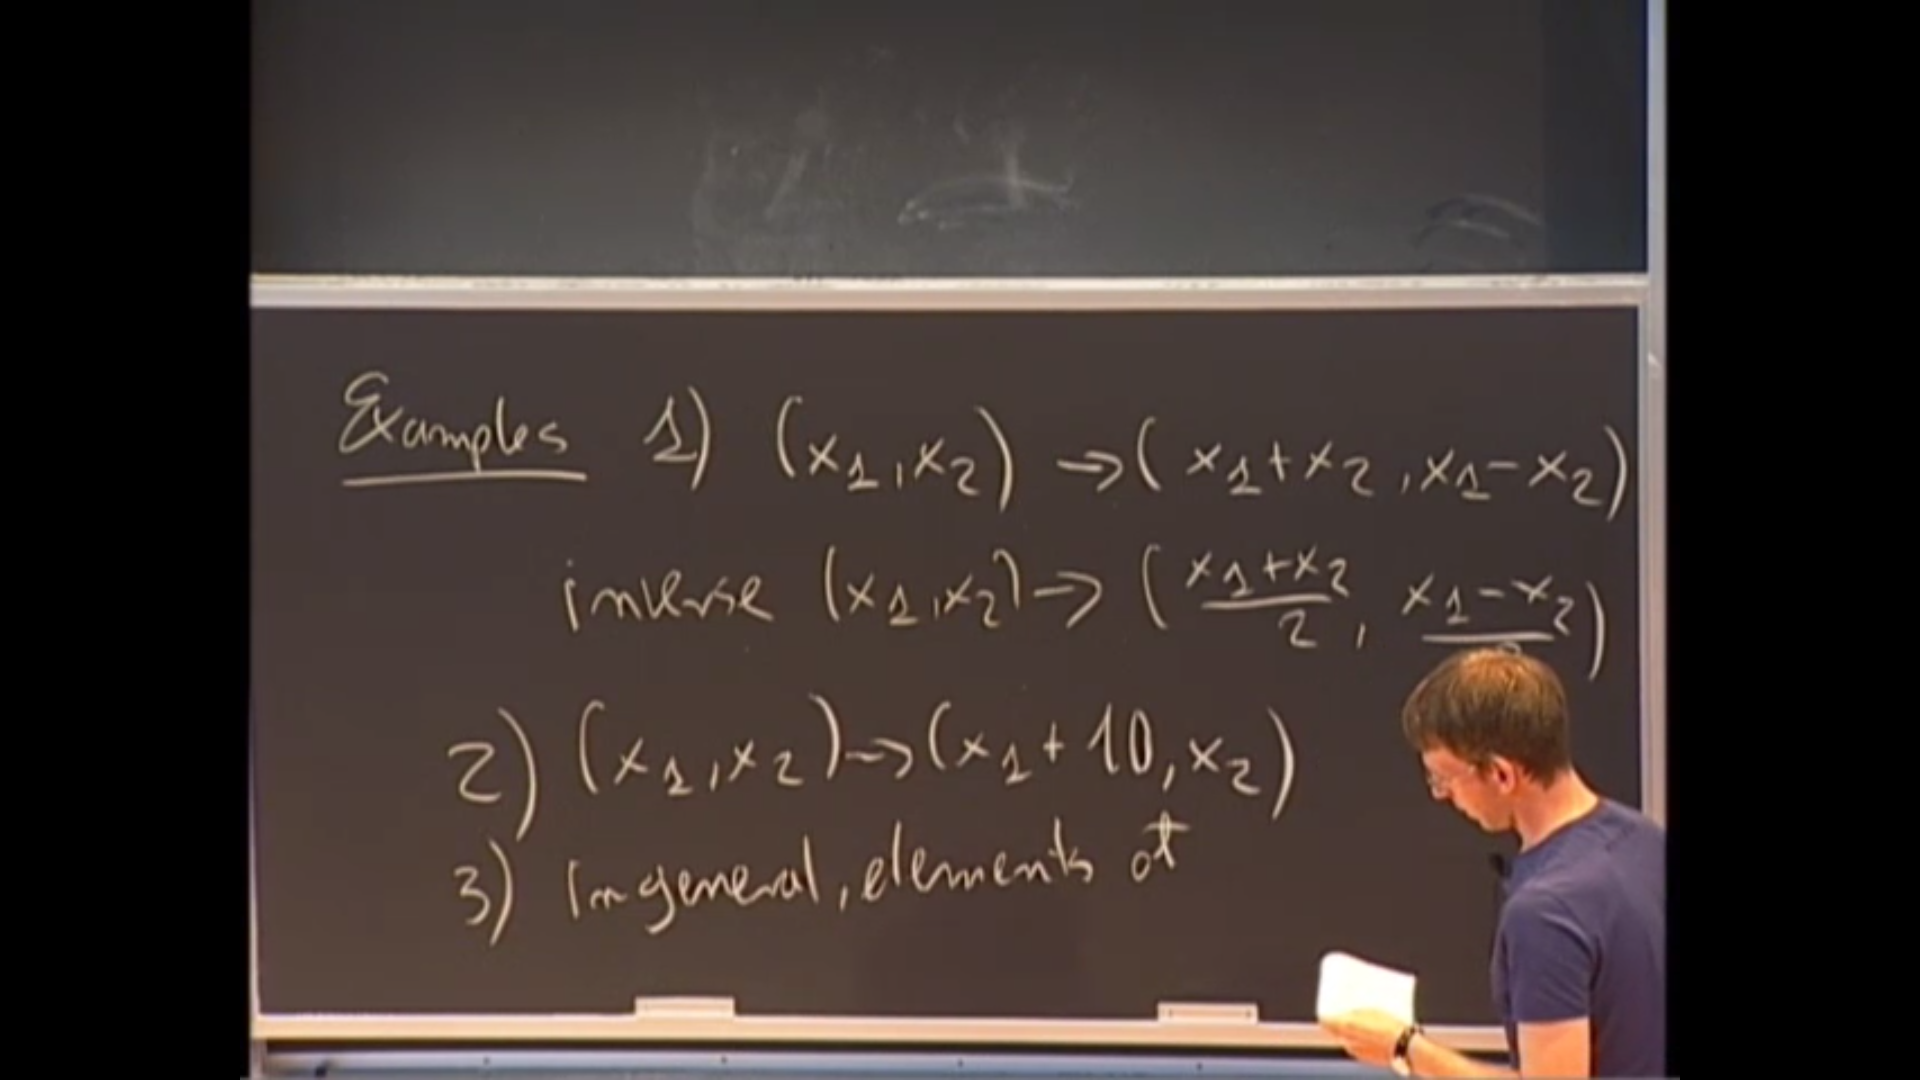 Examples 1) (x₁,x₂) → (x₁+x₂, x₁-x₂)
inverse (x₁,x₂) → (x₁+x₂/2, x₁-x₂/2)
2) (x₁,x₂) → (x₁+10, x₂)
3) In general, elements of